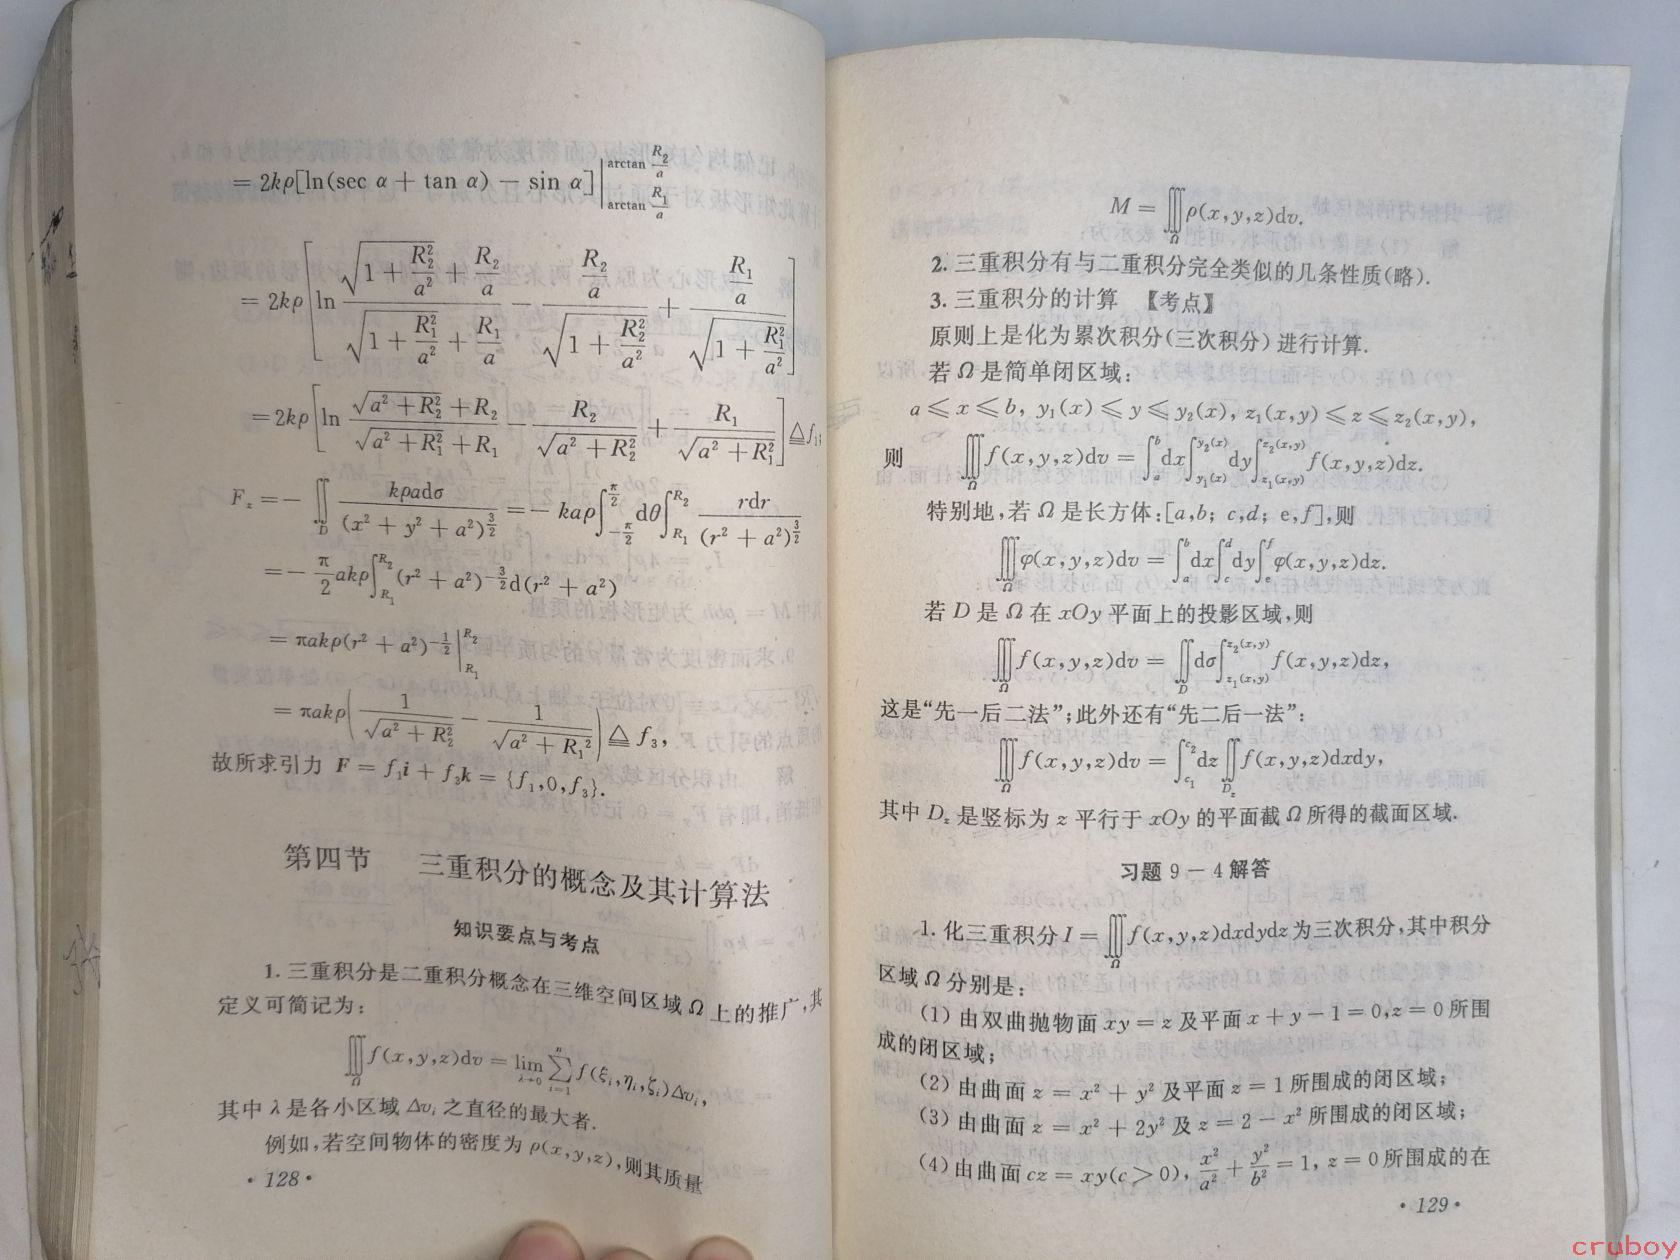 = 2kρ[ln(sec α + tan α) − sin α]|_{arctan R₁/a}^{arctan R₂/a}
= 2kρ[ln (√(1 + R₂²/a²) + R₂/a)/(√(1 + R₁²/a²) + R₁/a) − (R₂/a)/√(1 + R₂²/a²) + (R₁/a)/√(1 + R₁²/a²)]
= 2kρ[ln (√(a² + R₂²) + R₂)/(√(a² + R₁²) + R₁) − R₂/√(a² + R₂²) + R₁/√(a² + R₁²)] ≜ f₁
F_z = − ∬_D kρadσ/(x² + y² + a²)^{3/2} = − kaρ∫_{−π/2}^{π/2} dθ∫_{R₁}^{R₂} rdr/(r² + a²)^{3/2}
= − π/2 akρ∫_{R₁}^{R₂}(r² + a²)^{−3/2}d(r² + a²)
= πakρ(r² + a²)^{−1/2}|_{R₁}^{R₂}
= πakρ(1/√(a² + R₂²) − 1/√(a² + R₁²)) ≜ f₃,
故所求引力 F = f₁i + f₃k = {f₁,0,f₃}.
第四节 三重积分的概念及其计算法
知识要点与考点
1. 三重积分是二重积分概念在三维空间区域 Ω 上的推广,其
定义可简记为:
∭_Ω f(x,y,z)dv = lim_{λ→0} ∑_{i=1}^{n} f(ξᵢ,ηᵢ,ζᵢ)Δvᵢ,
其中 λ 是各小区域 Δvᵢ 之直径的最大者.
例如,若空间物体的密度为 ρ(x,y,z),则其质量
· 128 ·
M = ∭_Ω ρ(x,y,z)dv.
2. 三重积分有与二重积分完全类似的几条性质(略).
3. 三重积分的计算 【考点】
原则上是化为累次积分(三次积分)进行计算.
若 Ω 是简单闭区域:
a ≤ x ≤ b, y₁(x) ≤ y ≤ y₂(x), z₁(x,y) ≤ z ≤ z₂(x,y),
则 ∭_Ω f(x,y,z)dv = ∫_a^b dx∫_{y₁(x)}^{y₂(x)} dy∫_{z₁(x,y)}^{z₂(x,y)} f(x,y,z)dz.
特别地,若 Ω 是长方体:[a,b; c,d; e,f],则
∭_Ω φ(x,y,z)dv = ∫_a^b dx∫_c^d dy∫_e^f φ(x,y,z)dz.
若 D 是 Ω 在 xOy 平面上的投影区域,则
∭_Ω f(x,y,z)dv = ∬_D dσ∫_{z₁(x,y)}^{z₂(x,y)} f(x,y,z)dz,
这是“先一后二法”;此外还有“先二后一法”:
∭_Ω f(x,y,z)dv = ∫_{c₁}^{c₂} dz∬_{D_z} f(x,y,z)dxdy,
其中 D_z 是竖标为 z 平行于 xOy 的平面截 Ω 所得的截面区域.
习题 9 − 4 解答
1. 化三重积分 I = ∭_Ω f(x,y,z)dxdydz 为三次积分,其中积分
区域 Ω 分别是:
(1) 由双曲抛物面 xy = z 及平面 x + y − 1 = 0, z = 0 所围
成的闭区域;
(2) 由曲面 z = x² + y² 及平面 z = 1 所围成的闭区域;
(3) 由曲面 z = x² + 2y² 及 z = 2 − x² 所围成的闭区域;
(4) 由曲面 cz = xy(c > 0), x²/a² + y²/b² = 1, z = 0 所围成的在
· 129 ·
cruboy